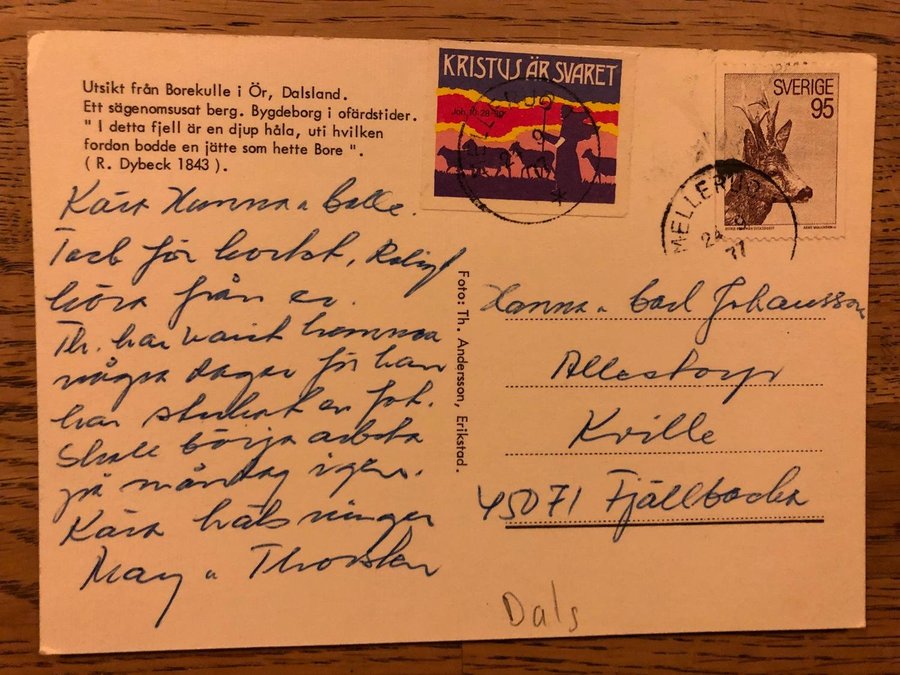 Utsikt från Borekulle i Ör, Dalsland.
Ett sägenomsusat berg. Bygdeborg i ofärdstider.
" I detta fjell är en djup håla, uti hvilken
fordon bodde en jätte som hette Bore ".
( R. Dybeck 1843 ).
KRISTUS ÄR SVARET
Joh. 10:28-30
MELLERUD
SVERIGE
95
MELLERUD
24 9
77
Kära Hanna o Calle.
Tack för kortet, Roligt
höra från er.
Th. har varit hemma
några dagar för han
har stukat en fot.
Skall börja arbeta
på måndag igen.
Kära hälsningar
May o Thorsten
Foto: Th. Andersson, Erikstad.
Hanna o Carl Johansson
Allestorp
Kville
45071 Fjällbacka
Dals